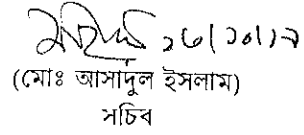 ১৬/১০/১৭
(মোঃ আসাদুল ইসলাম)
সচিব